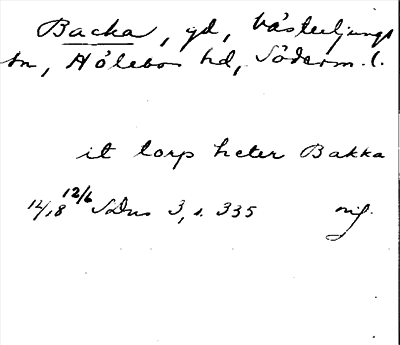 Backa, gd, Västerljungs
sn, Hölebo hd, Söderm. l.
it torp heter Bakka
12/6
14/18 SDns 3, s. 335